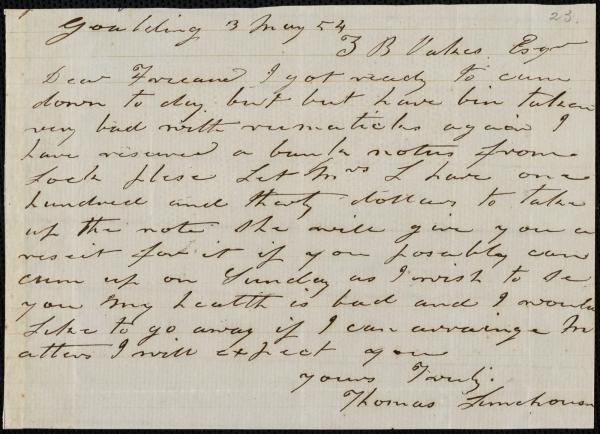 23.
Goulding 3 May 54
Z B Oakes Esqr
Dear Freeand I got ready to cum
down to day but but have bin taken
very bad with rumaticks again I
have reseved a bank notis from
Lock plese Let Mrs L have one
hundred and therty dollars to take
up the note She will give you a
reseit for it if you posably can
cum up on Sunday as I wish to se
you My health is bad and I would
Like to go away if I can arrainge M
atters I will expect you
yours Truly
Thomas Limehouse